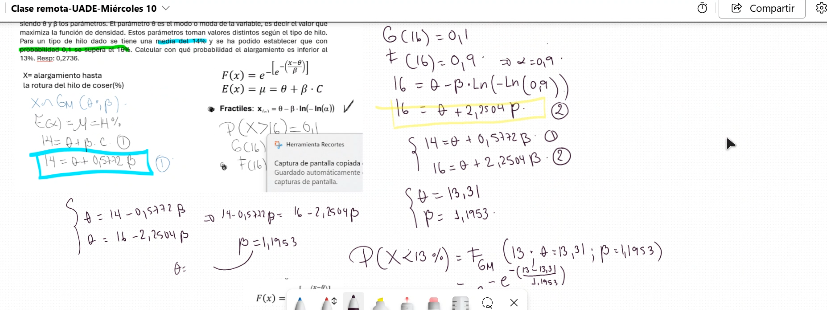 Clase remota-UADE-Miércoles 10
Compartir
siendo θ y β los parámetros. El parámetro θ es el modo o moda de la variable, es decir el valor que
maximiza la función de densidad. Estos parámetros toman valores distintos según el tipo de hilo.
Para un tipo de hilo dado se tiene una media del 14% y se ha podido establecer que con
probabilidad 0,1 se supera el 16%. Calcular con qué probabilidad el alargamiento es inferior al
13%. Resp: 0,2736.
X= alargamiento hasta
la rotura del hilo de coser(%)
X∼ GM (θ; β).
E(x) = μ = 14%
14 = θ + β. C ①
14 = θ + 0,5772 β ①
F(x) = e^-[e^-((x-θ)/β)]
E(x) = μ = θ + β · C
Fractiles: x = θ - β·ln(-ln(α)) ✓
P(X>16) = 0,1
G(16)
F(16)
Herramienta Recortes
Captura de pantalla copiada
Guardado automáticamente
capturas de pantalla.
G(16) = 0,1
F(16) = 0,9 ⇒ α = 0,9.
16 = θ - β. Ln(-Ln(0,9))
16 = θ + 2,2504 β. ②
{ 14 = θ + 0,5772 β. ①
16 = θ + 2,2504 β. ②
{ θ = 13,31
β = 1,1953.
{ θ = 14 - 0,5772 β
θ = 16 - 2,2504 β
⇒ 14 - 0,5772 β = 16 - 2,2504 β
β = 1,1953
θ=
P(X<13%) = F_GM (13; θ=13,31; β=1,1953)
= e^-e^-((13-13,31)/1,1953)
F(x) =